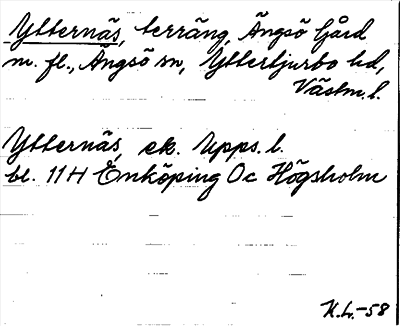 Ytternäs, terräng, Ängsö Gård
m. fl., Ängsö sn, Yttertjurbo hd,
Västm. l.
Ytternäs, ek. Upps. l.
bl. 11H Enköping Oc Högsholm
K.L.-58